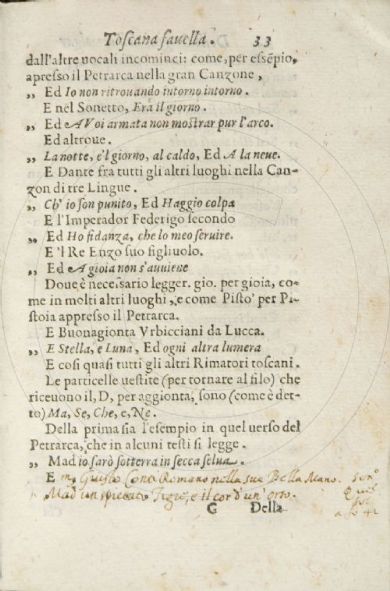 Toscana fauella. 33
dall'altre uocali incominci: come, per essẽpio,
apresso il Petrarca nella gran Canzone,
„ Ed Io non ritrouando intorno intorno.
E nel Sonetto, Era il giorno.
„ Ed A Voi armata non mostrar pur l'arco.
Ed altroue.
„ La notte, e'l giorno, al caldo, Ed A la neue.
E Dante fra tutti gli altri luoghi nella Can-
zon di tre Lingue.
„ Ch' io son punito, Ed Haggio colpa
E l'Imperador Federigo secondo
„ Ed Ho fidanza, che lo meo seruire.
E'l Re Enzo suo figliuolo.
„ Ed A gioia non s'auuiene
Doue è necessario legger. gio. per gioia, co-
me in molti altri luoghi, e come Pisto' per Pi-
stoia appresso il Petrarca.
E Buonagionta Vrbicciani da Lucca.
„ E Stella, e Luna, Ed ogni altra lumera
E cosi quasi tutti gli altri Rimatori toscani.
Le particelle uestite (per tornare al filo) che
riceuono il, D, per aggionta, sono (come è det-
to) Ma, Se, Che, e, Ne.
Della prima sia l'esempio in quel uerso del
Petrarca, che in alcuni testi si legge.
„ Mad io sarò sotterra in secca selua.
E Giusto Romano nella sua Bella Mano.
Mad un Tigre, e il cor d'un' orso.
G Della